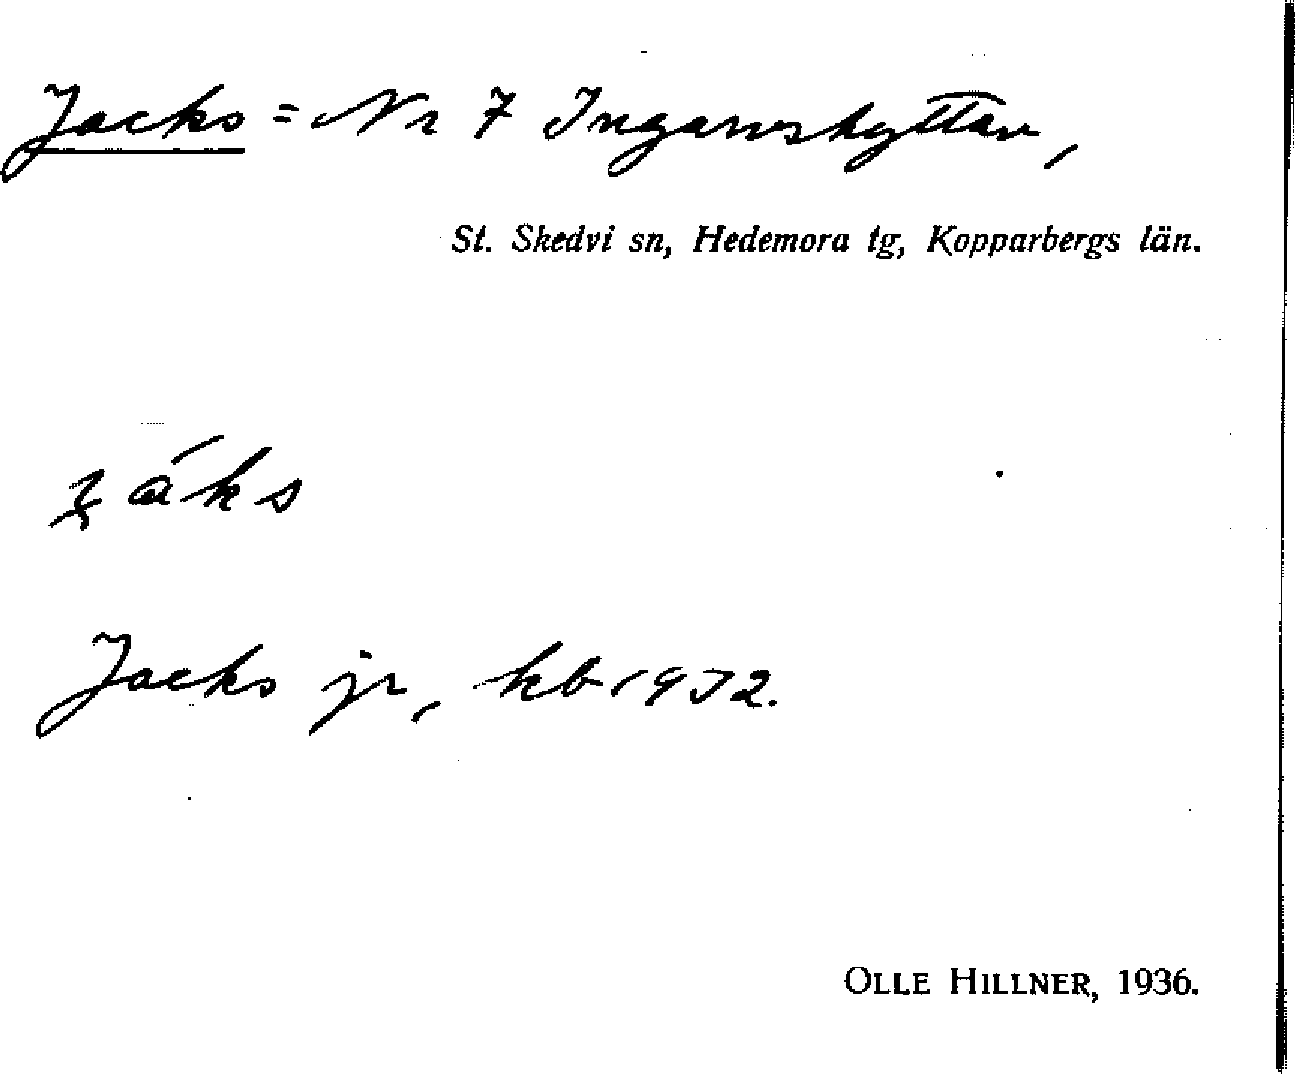 Jacks = Nr 7 Ingarvshyttan,
St. Skedvi sn, Hedemora tg, Kopparbergs län.
Jacks jr, kb 1932.
OLLE HILLNER, 1936.